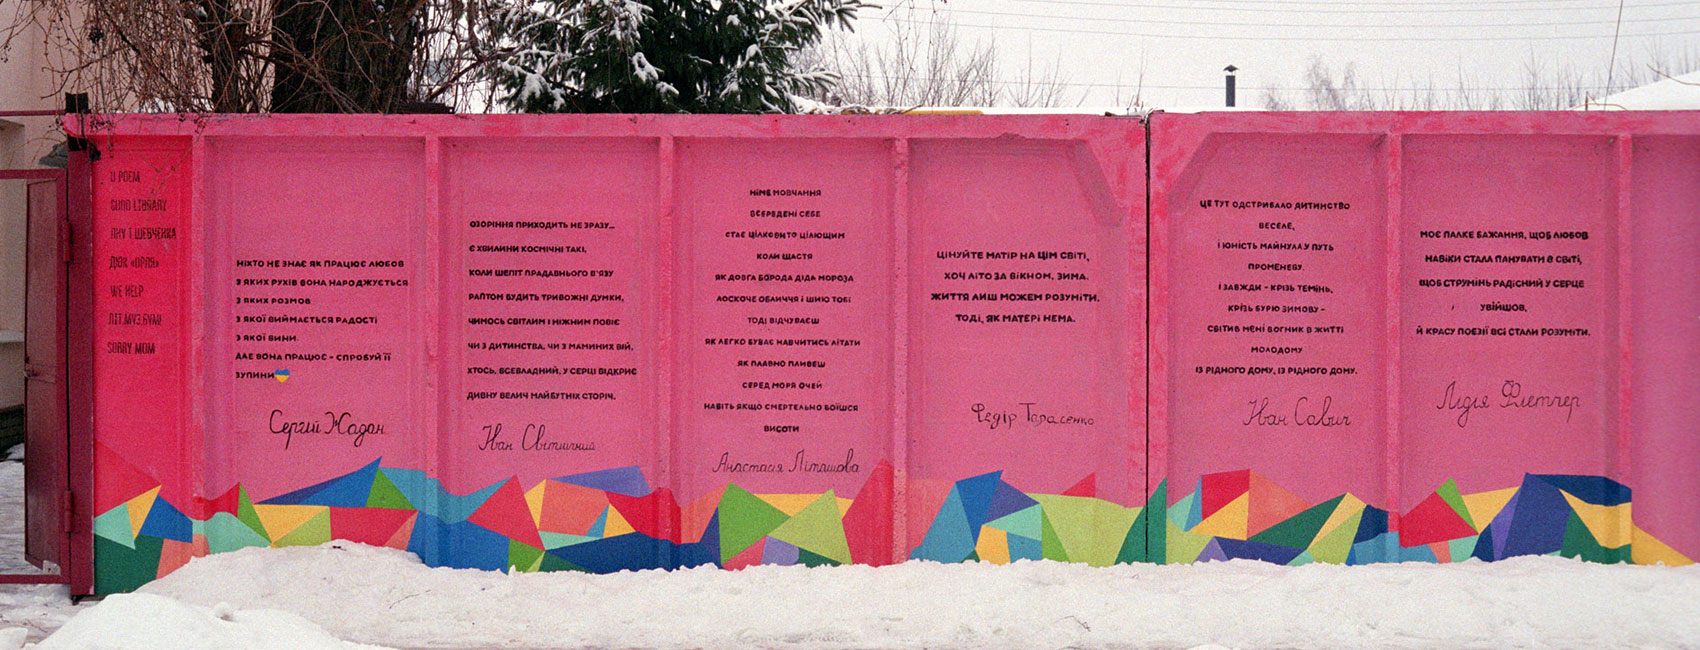 U POEM
GURU LIBRARY
ЛНУ Т.ШЕВЧЕНКА
ДЮК «ОРЛЯ»
WE HELP
ЛІТ.МУЗ.БУМ!
SORRY MOM
НІХТО НЕ ЗНАЄ ЯК ПРАЦЮЄ ЛЮБОВ
З ЯКИХ РУХІВ ВОНА НАРОДЖУЄТЬСЯ
З ЯКИХ РОЗМОВ
З ЯКОЇ ВИЙМАЄТЬСЯ РАДОСТІ
З ЯКОЇ ВИНИ
АЛЕ ВОНА ПРАЦЮЄ - СПРОБУЙ ЇЇ
ЗУПИНИ
Сергій Жадан
ОЗОРІННЯ ПРИХОДИТЬ НЕ ЗРАЗУ...
Є ХВИЛИНИ КОСМІЧНІ ТАКІ,
КОЛИ ШЕПІТ ПРАДАВНЬОГО В'ЯЗУ
РАПТОМ БУДИТЬ ТРИВОЖНІ ДУМКИ,
ЧИМОСЬ СВІТЛИМ І НІЖНИМ ПОВІЄ
ЧИ З ДИТИНСТВА, ЧИ З МАМИНИХ ВІЙ,
ХТОСЬ, ВСЕВЛАДНИЙ, У СЕРЦІ ВІДКРИЄ
ДИВНУ ВЕЛИЧ МАЙБУТНІХ СТОРІЧ.
Іван Світличний
НІМЕ МОВЧАННЯ
ВСЕРЕДЕНІ СЕБЕ
СТАЄ ЦІЛКОВИТО ЦІЛЮЩИМ
КОЛИ ЩАСТЯ
ЯК ДОВГА БОРОДА ДІДА МОРОЗА
ЛОСКОЧЕ ОБЛИЧЧЯ І ШИЮ ТОБІ
ТОДІ ВІДЧУВАЄШ
ЯК ЛЕГКО БУВАЄ НАВЧИТИСЬ ЛІТАТИ
ЯК ПЛАВНО ПЛИВЕШ
СЕРЕД МОРЯ ОЧЕЙ
НАВІТЬ ЯКЩО СМЕРТЕЛЬНО БОЇШСЯ
ВИСОТИ
Анастасія Літашова
ЦІНУЙТЕ МАТІР НА ЦІМ СВІТІ,
ХОЧ ЛІТО ЗА ВІКНОМ, ЗИМА.
ЖИТТЯ ЛИШ МОЖЕМ РОЗУМІТИ,
ТОДІ, ЯК МАТЕРІ НЕМА.
Федір Тарасенко
ЦЕ ТУТ ОДСТРИБАЛО ДИТИНСТВО
ВЕСЕЛЕ,
І ЮНІСТЬ МАЙНУЛА У ПУТЬ
ПРОМЕНЕВУ.
І ЗАВЖДИ - КРІЗЬ ТЕМІНЬ,
КРІЗЬ БУРЮ ЗИМОВУ -
СВІТИВ МЕНІ ВОГНИК В ЖИТТІ
МОЛОДОМУ
ІЗ РІДНОГО ДОМУ, ІЗ РІДНОГО ДОМУ.
Іван Савич
МОЄ ПАЛКЕ БАЖАННЯ, ЩОБ ЛЮБОВ
НАВІКИ СТАЛА ПАНУВАТИ В СВІТІ,
ЩОБ СТРУМІНЬ РАДІСНИЙ У СЕРЦЕ
УВІЙШОВ,
Й КРАСУ ПОЕЗІЇ ВСІ СТАЛИ РОЗУМІТИ.
Лідія Флетчер